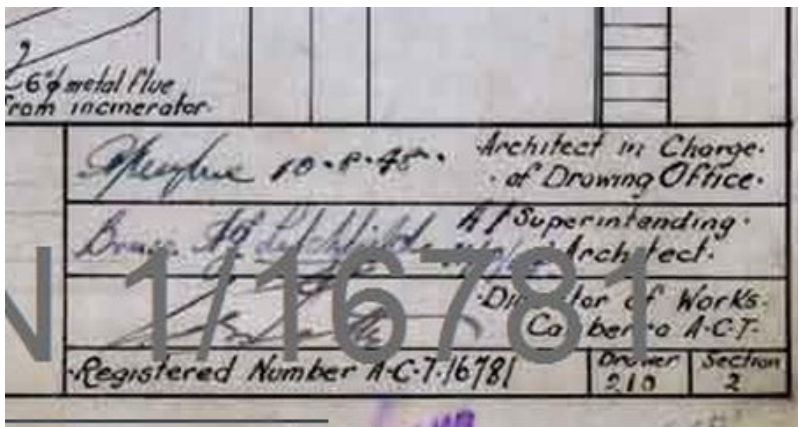 6"φ metal flue
from incinerator.
10.8.45.
Architect in Charge.
of Drawing Office.
Bruce Litchfield
A/Superintending
Architect.
Director of Works.
Canberra A.C.T.
N 1/16781
Registered Number A.C.T. 16781
Drawer
210
Section
2